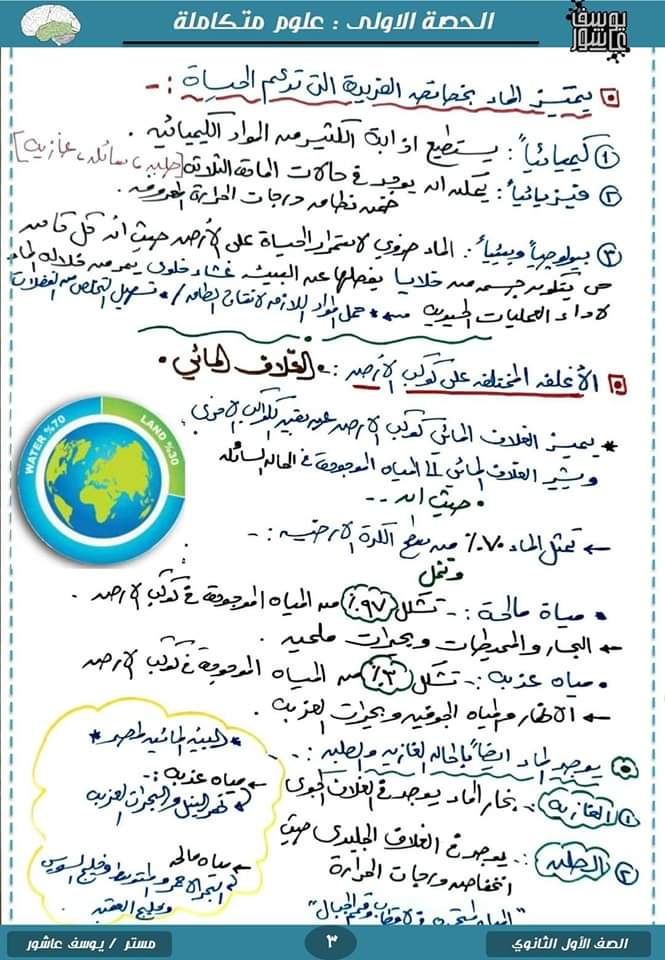 الحصة الاولى : علوم متكاملة
يوسف عاشور
يتميز الماء بخصائصه الفريدة التى تدعم الحياة :-
① كيميائياً : يستطيع اذابة الكثير من المواد الكيميائية .
② فيزيائياً : يمكنه ان يوجد فى حالات المادة الثلاثة [صلبه ، سائله ، غازيه]
ضمن نطاقه درجات الحرارة المعروفه .
③ بيولوجياً وبيئياً : الماء ضروري لاستمرار الحياة على الأرض حيث ان كل كائن
حى يتكون جسمه من خلايا يفصلها عن البيئه غشاء خلوى يمر من خلاله الماء
لاداء العمليات الحيويه * حمل المواد اللازمه لانتاج الطاقه / * تسهيل التخلص من الفضلات
الأغلفه المختلفه على كوكب الأرض :- . الغلاف المائي .
WATER %70
LAND %30
* يميز الغلاف المائي كوكب الارض عن بقية الكواكب الاخرى
ويشير الغلاف المائى الى المياه الموجودة فى الحاله السائله
حيث ان --
← تمثل الماء ٧٠٪ من سطح الكرة الارضيه :-
وتمثل
• مياة مالحة :- تشكل ٩٧٪ من المياه الموجودة فى كوكب الارض .
← البحار والمحيطات وبحيرات ملحيه .
• مياه عذبه :- تشكل ٣٪ من المياه الموجودة فى كوكب الارض
← الانهار والمياه الجوفيه وبحيرات العزبه .
يوجد الماء ايضاً بالحاله الغازيه والصلبه :-
① الغازية :- بخار الماء يوجد فى الغلاف الجوى
② الصلبه :- يوجد فى الغلاف الجليدى حيث
انخفاض درجات الحرارة
"المياه المتجمده فى الاقطاب وقمم الجبال"
* البيئه المائيه لمصر *
← مياه عذبه :-
نهر النيل والبحيرات العزبه
← مياه مالحه
البحر الاحمر والمتوسط وخليج السويس
وخليج العقبه
الصف الأول الثانوي
٣
مستر / يوسف عاشور